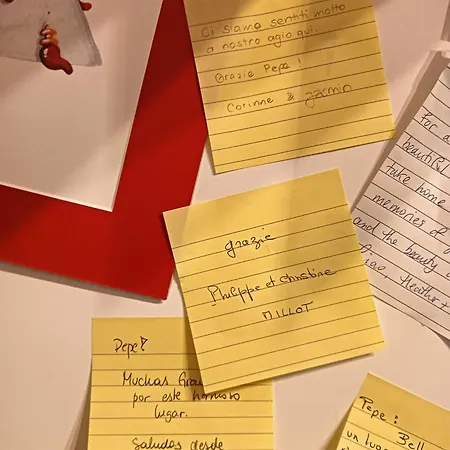 Ci siamo sentiti molto
a nostro agio qui.
Grazie Pepe!
Corinne & Jasmin
For a
beautiful
take home
memories of
and the beauty
Ciao, Heather +
grazie
Philippe et Christine
MILLOT
Pepe!
Muchas Gra
por este hermoso
lugar.
Saludos desde
Pepe:
Bell
un luga